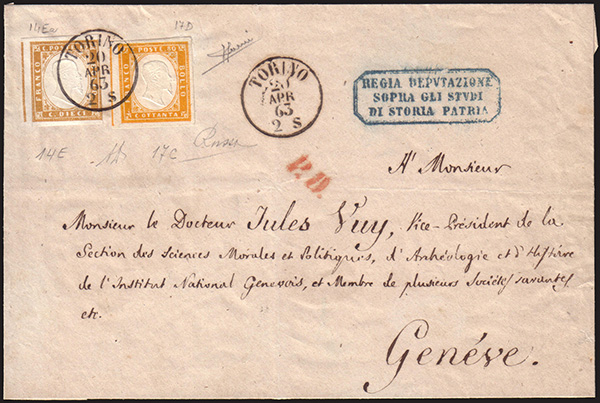 14Ea
17D
FRANCO C. POSTE
C. DIECI
FRANCO C. POSTE 80 BOLLO
C. OTTANTA
TORINO
20
APR
63
2 S
TORINO
20
APR
63
2 S
REGIA DEPVTAZIONE
SOPRA GLI STVDI
DI STORIA PATRIA
14E
17C
P.D.
A' Monsieur
Monsieur le Docteur Jules Vuy, Vice-Président de la
Section des Sciences Morales et Politiques, d'Archéologie et d'Histoire
de l'Institut National Genevois, et Membre de plusieurs Sociétés savantes
etc.
Genéve.